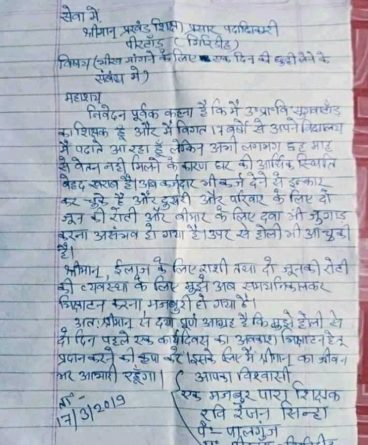 सेवा में
श्रीमान् प्रखंड शिक्षा प्रसार पदाधिकारी
पीरटाँड़ (गिरिडीह)
विषय (भीख मांगने के लिए एक दिन की छुट्टी लेने के
संबंध में)
महाशय
निवेदन पूर्वक कहना है कि मैं उ०प्रा०वि०
का शिक्षक हूँ और मैं विगत 17 वर्षों से अपने विद्यालय
में पढाते आ रहा हूँ लेकिन अभी लगभग छह माह
से वेतन नहीं मिलने के कारण घर की आर्थिक स्थिति
बेहद खराब है। अब कर्जदार भी कर्ज देने से इन्कार
कर चुके हैं और दुसरी और परिवार के लिए दो
जून की रोटी और बीमार के लिए दवा भी जुगाड़
करना असंभव हो गया है। उपर से होली भी आ चुकी
है।
श्रीमान्, ईलाज के लिए राशी तथा दो जून की रोटी
की व्यवस्था के लिए मुझे अब समय निकालकर
भिक्षाटन करना मजबूरी हो गया है।
अतः श्रीमान् से दया पूर्ण आग्रह है कि मुझे होली से
दो दिन पहले एक कार्य दिवस का अवकाश भिक्षाटन हेतु
प्रदान करने की कृपा करें। इसके लिए मैं श्रीमान् का जीवन
भर आभारी रहूँगा।
आपका विश्वासी
एक मजबुर पारा शिक्षक
ता०-
17/3/2019
रवि रंजन सिन्हा
पो- पालगंज